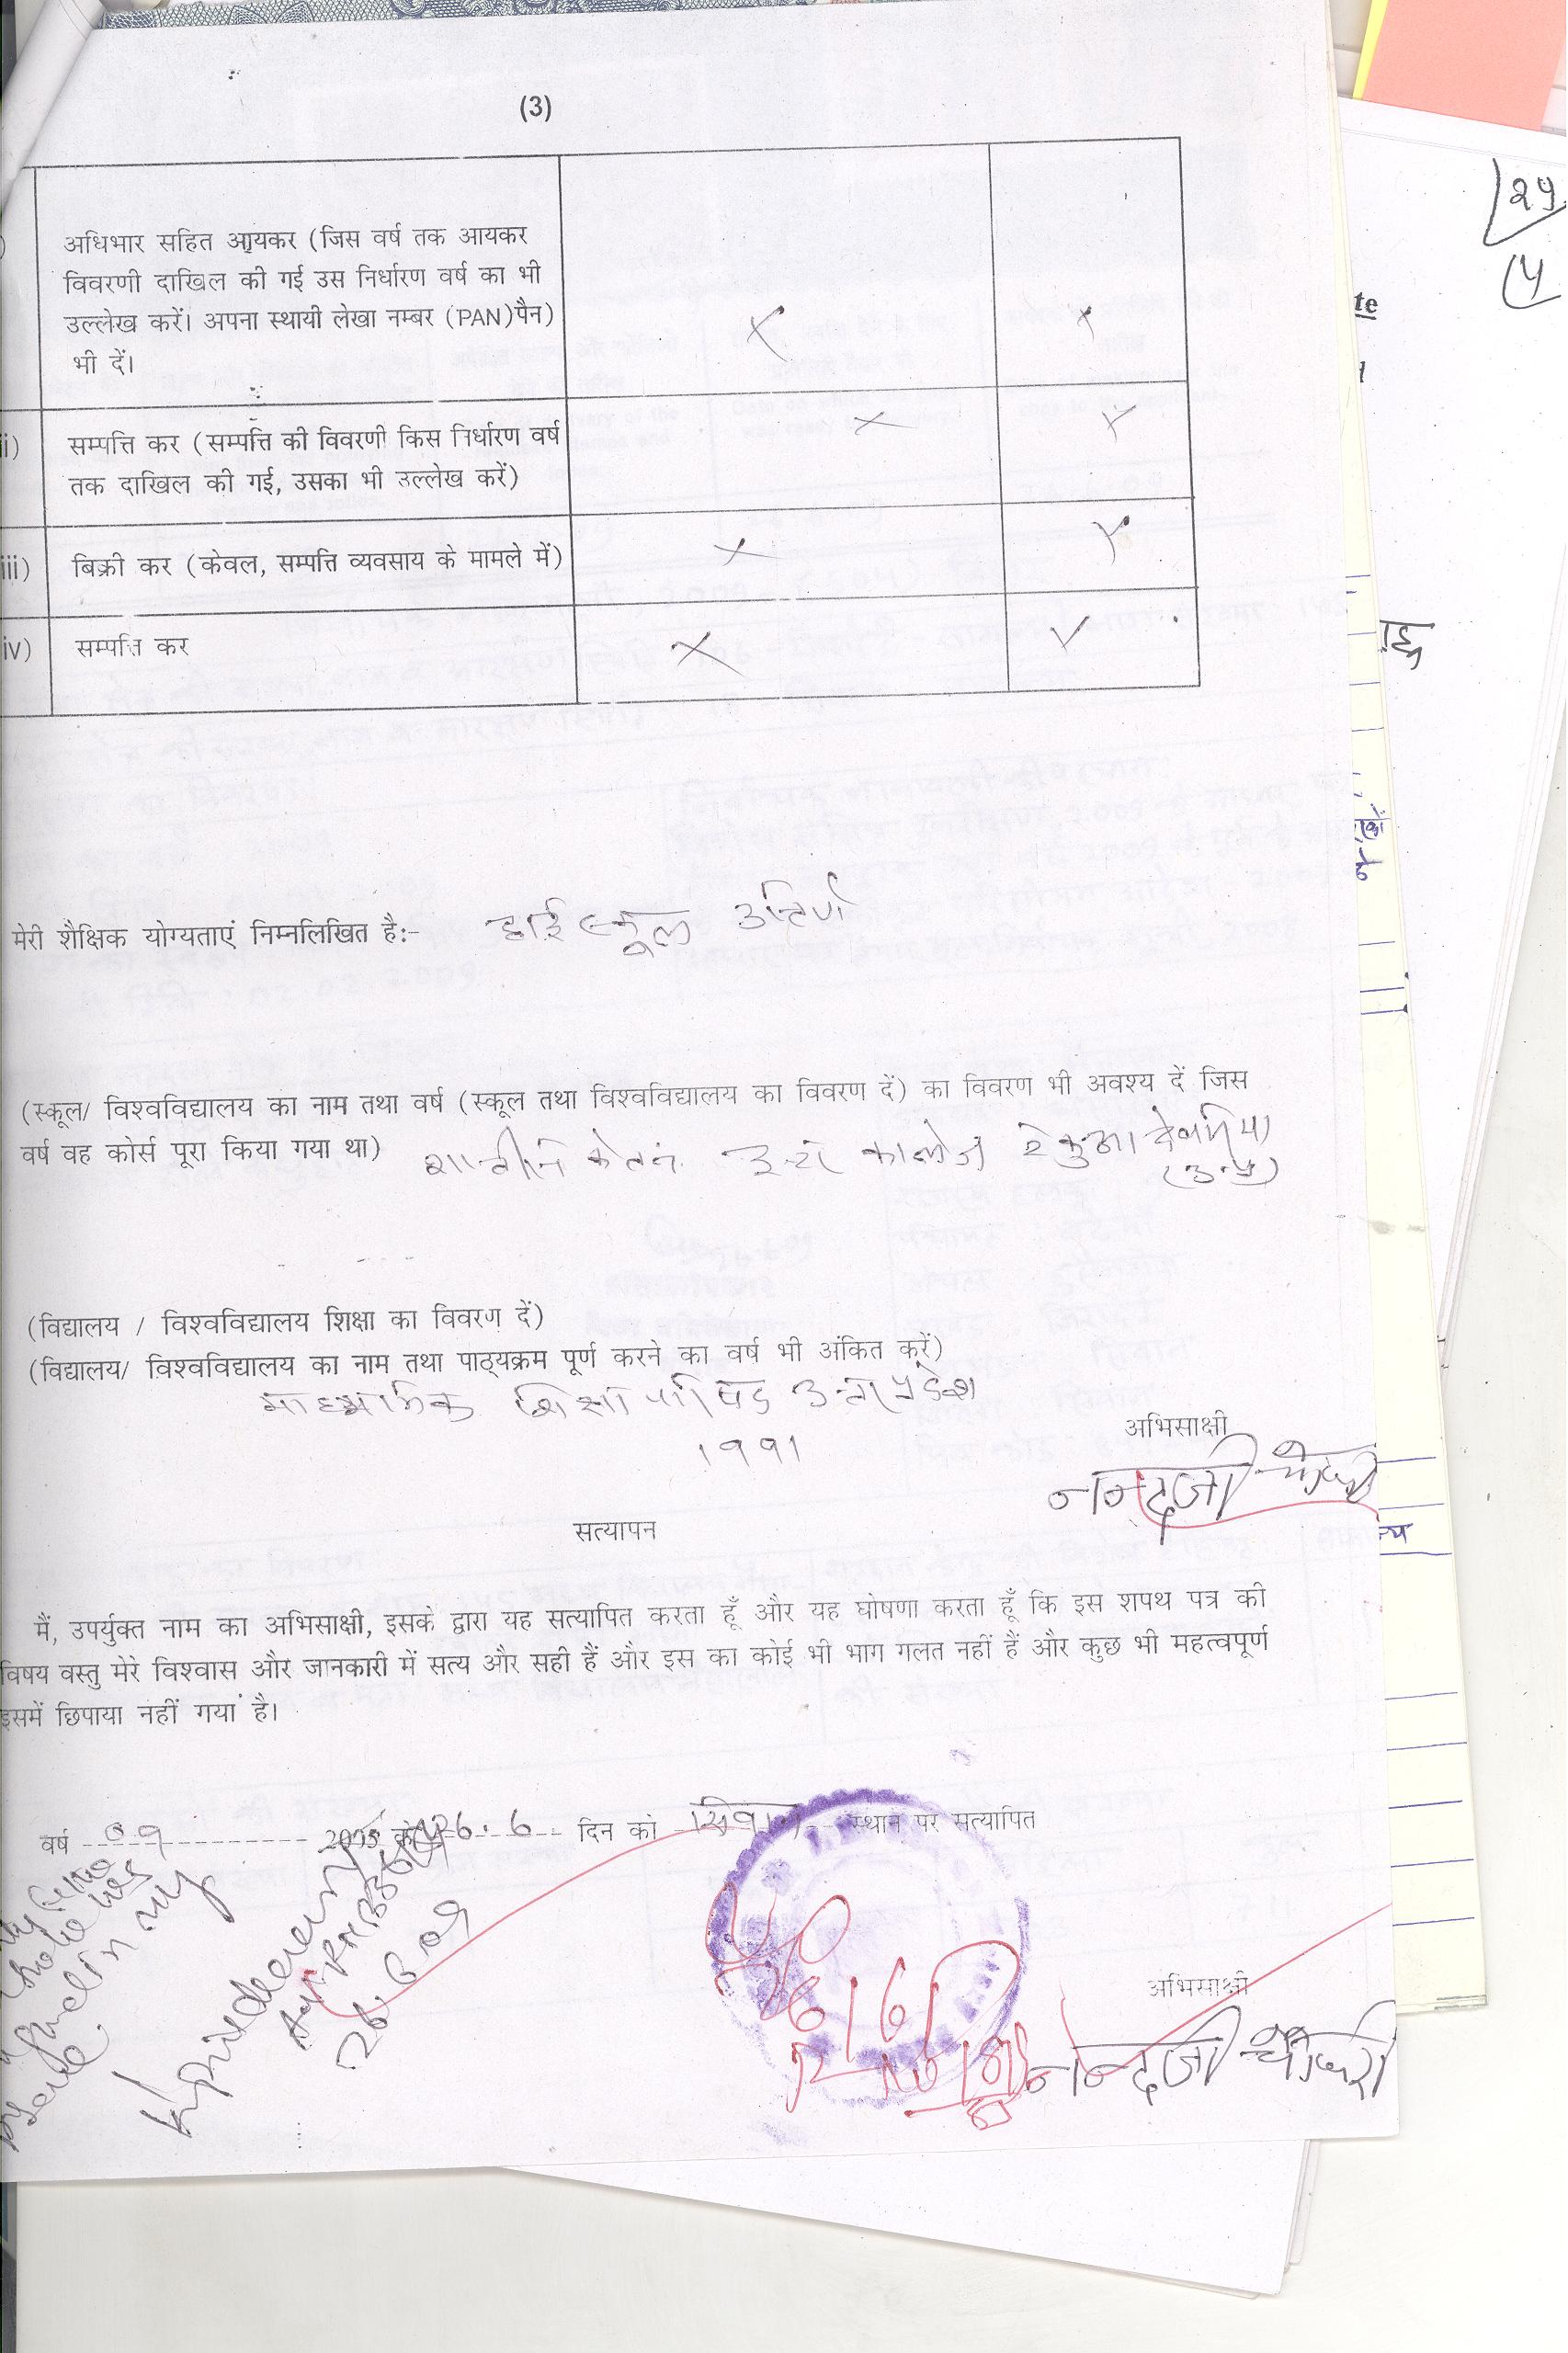 (3)
अधिभार सहित आयकर (जिस वर्ष तक आयकर
विवरणी दाखिल की गई उस निर्धारण वर्ष का भी
उल्लेख करें। अपना स्थायी लेखा नम्बर (PAN)पैन)
भी दें।
X X
ii) सम्पत्ति कर (सम्पत्ति की विवरणी किस निर्धारण वर्ष
तक दाखिल की गई, उसका भी उल्लेख करें)
X X
iii) बिक्री कर (केवल, सम्पत्ति व्यवसाय के मामले में)
X X
iv) सम्पत्ति कर
X X
मेरी शैक्षिक योग्यताएं निम्नलिखित है:- हाई स्कूल
(स्कूल/ विश्वविद्यालय का नाम तथा वर्ष (स्कूल तथा विश्वविद्यालय का विवरण दें) का विवरण भी अवश्य दें जिस
वर्ष वह कोर्स पूरा किया गया था) कालेज
(उ.प्र)
(विद्यालय / विश्वविद्यालय शिक्षा का विवरण दें)
(विद्यालय/ विश्वविद्यालय का नाम तथा पाठ्यक्रम पूर्ण करने का वर्ष भी अंकित करें)
माध्यमिक शिक्षा परिषद
१९९१
अभिसाक्षी
नन्दजी चौधरी
सत्यापन
मैं, उपर्युक्त नाम का अभिसाक्षी, इसके द्वारा यह सत्यापित करता हूँ और यह घोषणा करता हूँ कि इस शपथ पत्र की
विषय वस्तु मेरे विश्वास और जानकारी में सत्य और सही हैं और इस का कोई भी भाग गलत नहीं हैं और कुछ भी महत्वपूर्ण
इसमें छिपाया नहीं गया है।
वर्ष 09 26.6 दिन को सिवान स्थान पर सत्यापित
26.6.09
अभिसाक्षी
नन्दजी चौधरी
te